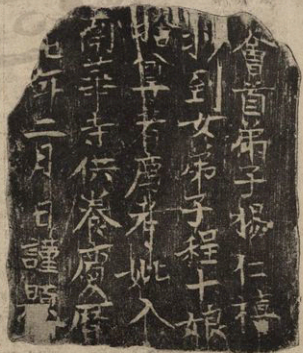 會首弟子楊仁禧
到女弟子程十娘
捨尊者薦考妣入
南華寺供養慶曆
七年二月日謹題